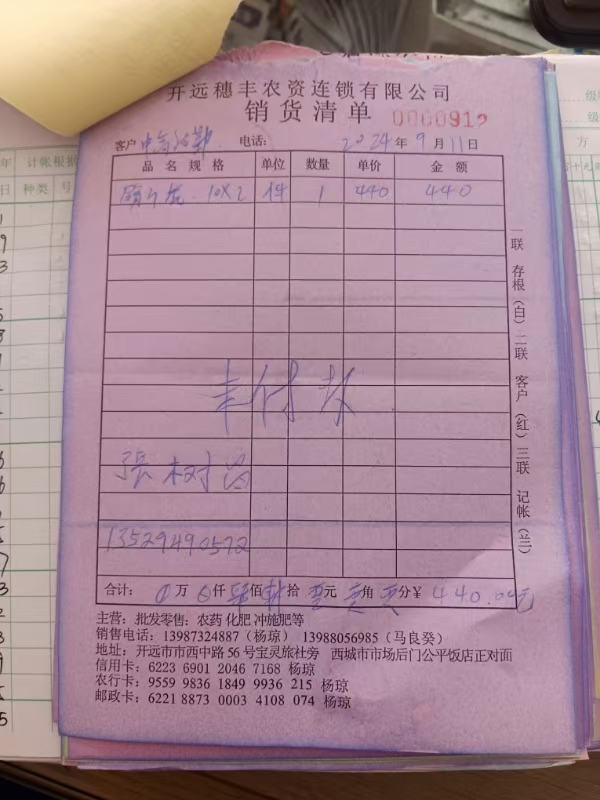 开远穗丰农资连锁有限公司
销货清单 0000912
客户 电话： 2024年9月11日
品名规格 单位 数量 单价 金额
10×2 件 1 440 440
一联 存根（白） 二联 客户（红） 三联 记帐（兰）
未付款
张树
13529490572
合计： 万 仟 佰 拾 元 角 分￥ 440.00元
主营：批发零售：农药 化肥 冲施肥等
销售电话：13987324887（杨琼） 13988056985（马良癸）
地址：开远市市西中路56号宝灵旅社旁 西城市市场后门公平饭店正对面
信用卡：6223 6901 2046 7168 杨琼
农行卡：9559 9836 1849 9936 215 杨琼
邮政卡：6221 8873 0003 4108 074 杨琼
计帐根据
种类 号
年
日
级
方